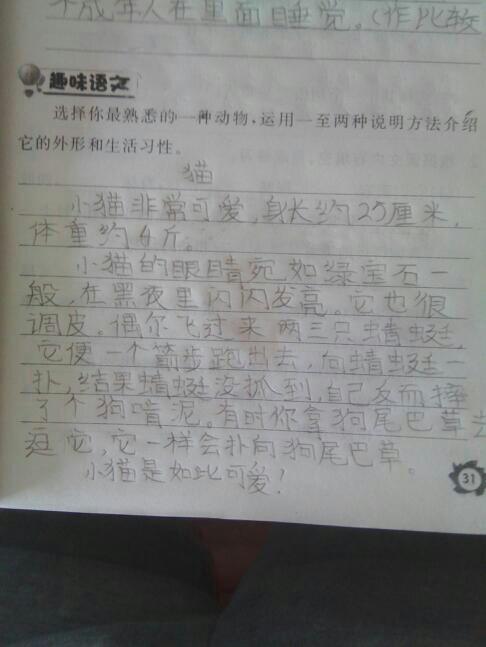 个成年人在里面睡觉。(作比较
趣味语文
选择你最熟悉的一种动物,运用一至两种说明方法介绍
它的外形和生活习性。
猫
小猫非常可爱,身长约25厘米,
体重约4斤。
小猫的眼睛宛如绿宝石一
般,在黑夜里闪闪发亮。它也很
调皮。偶尔飞过来两三只蜻蜓,
它便一个箭步跑出去,向蜻蜓一
扑,结果蜻蜓没抓到,自己反而摔
了个狗啃泥。有时你拿狗尾巴草去
逗它,它一样会扑向狗尾巴草。
小猫是如此可爱!
31